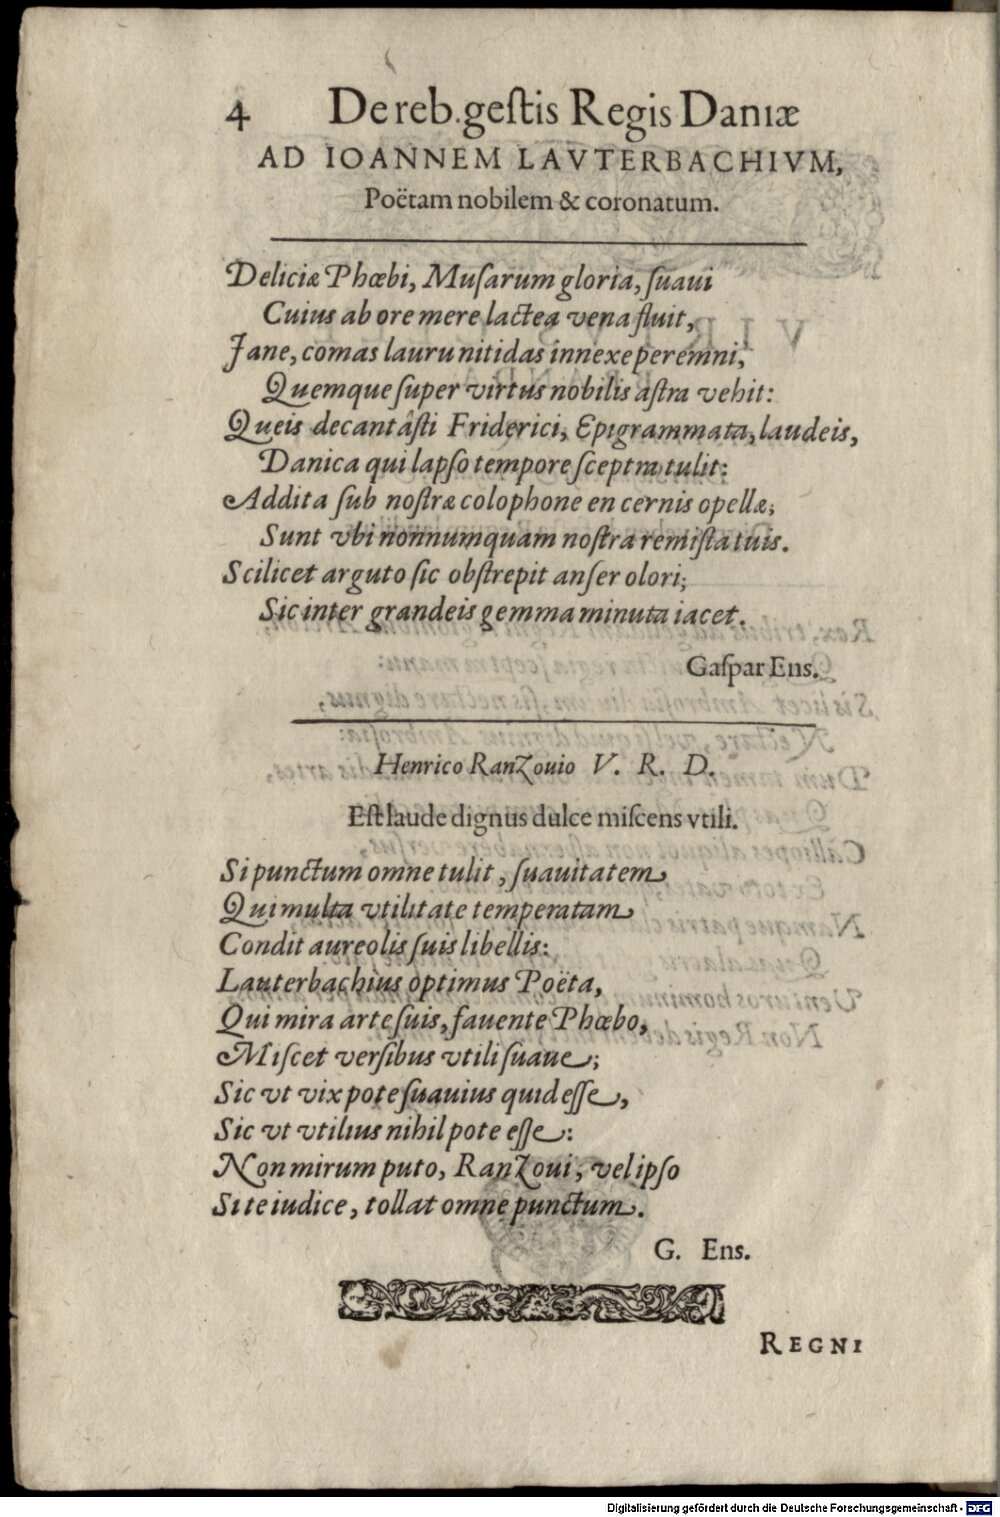 4 De reb. gestis Regis Daniæ
AD IOANNEM LAVTERBACHIVM,
Poëtam nobilem & coronatum.
Deliciæ Phœbi, Musarum gloria, suaui
Cuius ab ore mere lactea vena fluit,
Jane, comas lauru nitidas innexe peremni,
Quemque super virtus nobilis astra vehit:
Queis decantâsti Friderici, Epigrammata, laudeis,
Danica qui lapso tempore sceptra tulit:
Addita sub nostræ colophone en cernis opellæ,
Sunt vbi nonnumquam nostra remista tuis.
Scilicet arguto sic obstrepit anser olori;
Sic inter grandeis gemma minuta iacet.
Gaspar Ens.
Henrico RanZouio V. R. D.
Est laude dignus dulce miscens vtili.
Si punctum omne tulit, suauitatem
Qui multa vtilitate temperatam
Condit aureolis suis libellis:
Lauterbachius optimus Poëta,
Qui mira arte suis, fauente Phœbo,
Miscet versibus vtili suaue;
Sic vt vix pote suauius quid esse,
Sic vt vtilius nihil pote esse:
Non mirum puto, RanZoui, vel ipso
Si te iudice, tollat omne punctum.
G. Ens.
REGNI
Digitalisierung gefördert durch die Deutsche Forschungsgemeinschaft - DFG